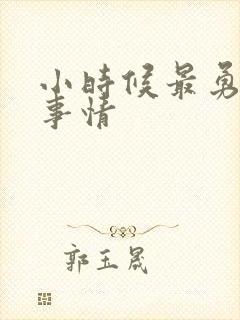 小时候最勇
事情
郭玉晟